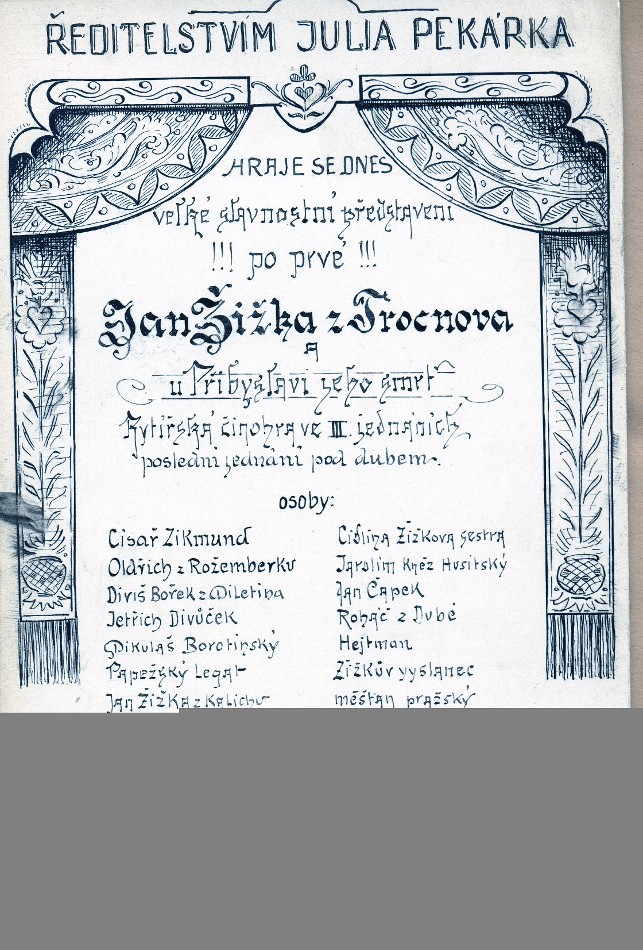 ŘEDITELSTVÍM JULIA PEKÁRKA
HRAJE SE DNES
veľké slavnostní představení
!!! po prvé !!!
Jan Žižka z Trocnova
A
u Přibyslavi jeho smrť
Rytířská činohra ve III. jednáních
poslední jednání pod dubem.
osoby:
Císař Zikmund
Oldřich z Rožemberku
Diviš Bořek z Miletína
Jetřich Divůček
Mikuláš Borotínský
Papežský Legat
Jan Žižka z Kalichu
Cidlina Žižkova sestra
Jarolím Kněz Husitský
Jan Čapek
Roháč z Dubé
Hejtman
Žižkův vyslanec
měšťan pražský